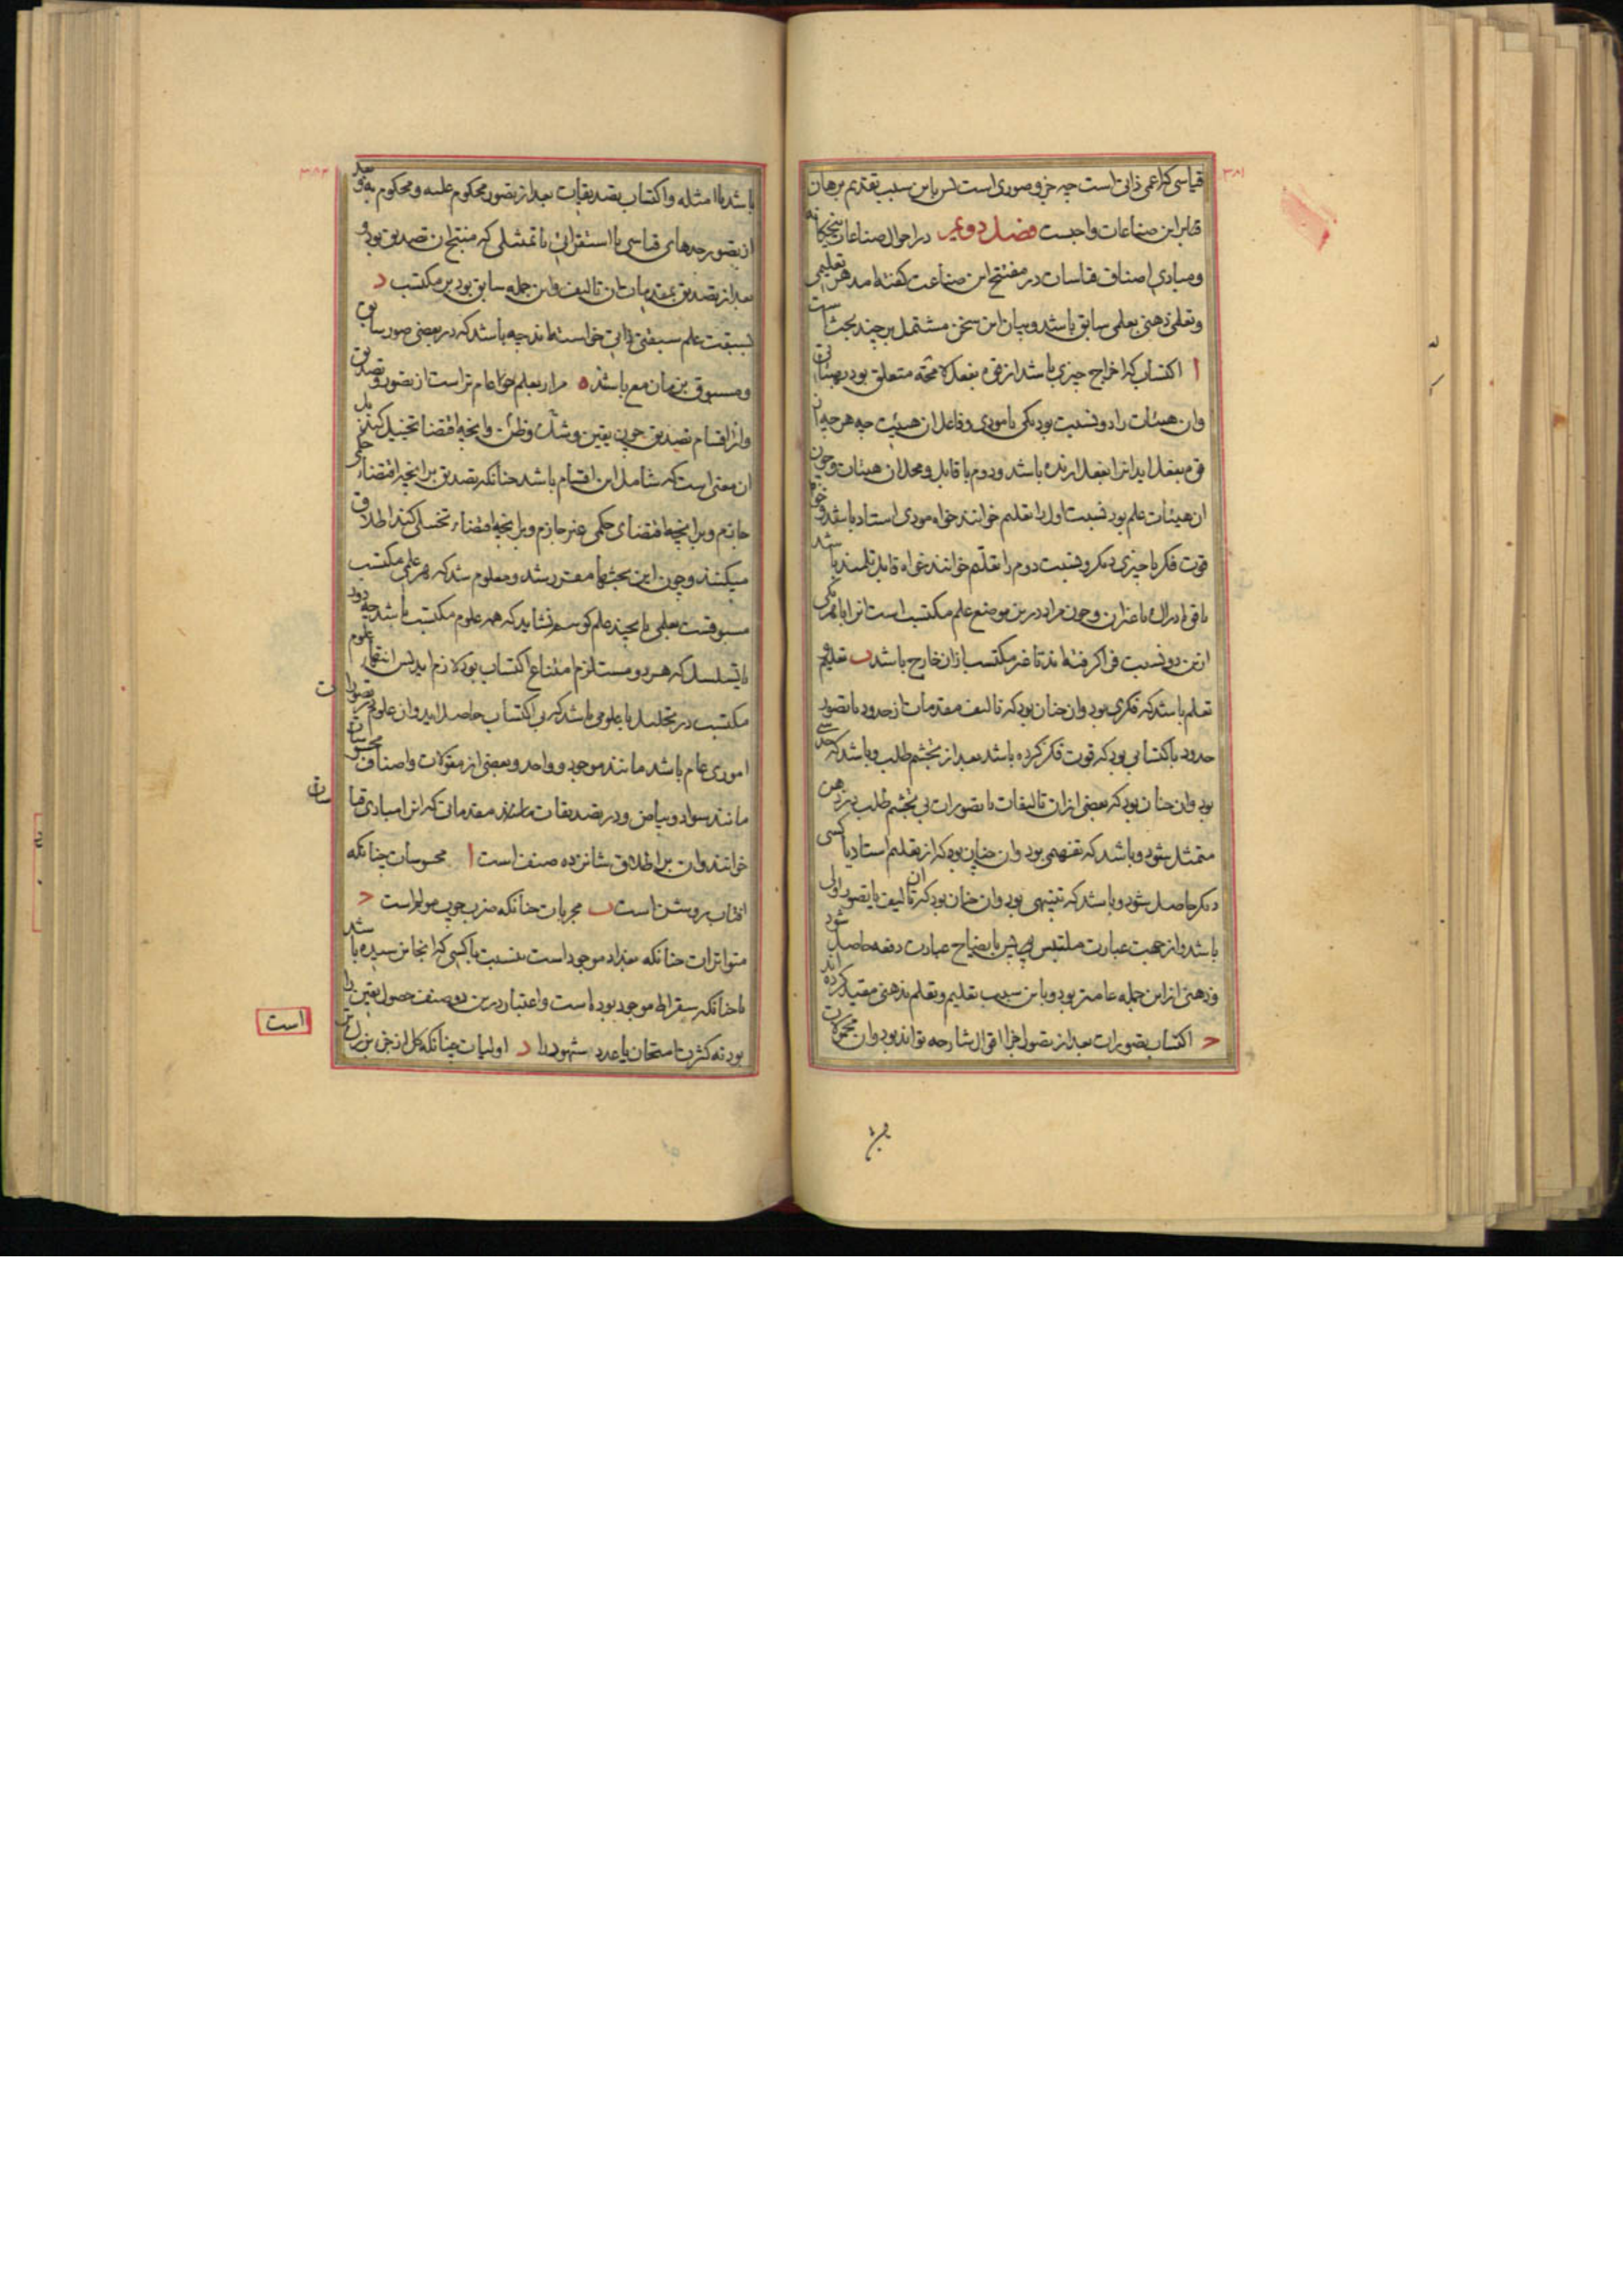 ۳۸۱
قیاسی که اعمی ذاتی است چه جزو صوری است پس باین سبب تقدیم برهان
بر این صناعات واجبست فصل دویم در احوال صناعات پنجگانه
ومبادی اصناف قیاسات در مفتتح این صناعت گفته‌اند هر تعلیمی
وتعلمی ذهنی بعلمی سابق باشد وبیان این سخن مشتمل بر چند بحث است
ا اکتساب که اخراج چیزی باشد از قوه بفعل لا محته متعلق بود بهیئاتی
وان هیئات را دو نسبت بود یکی با مودی وفاعل ان هیئت چه هرچه از
قوه بفعل اید انرا بفعل ارنده باشد ودوم با قابل ومحل ان هیئات وچون
ان هیئات علم بود نسبت اول را تعلیم خوانند خواه مودی استاد باشد وخواه
قوت فکر یا چیزی دیگر ونسبت دوم را تعلم خوانند خواه قابل تلمیذ باشد
یا قوه ادراک یا غیر ان وچون مراد درین موضع علم مکتسب است انرا با هریکی
ازین دو نسبت فرا گرفته‌اند تا غیر مکتسب ازان خارج باشد ب تعلیم و
تعلم باشد که فکری بود وان چنان بود که تالیف مقدمات از حدود یا تصور
حدود باکتسابی بود که قوت فکر کرده باشد بعد از تجشم طلب وباشد که حدسی
بود وان چنان بود که بعضی ازان تالیفات یا تصورات بی تجشم طلب در ذهن
متمثل شود وباشد که تفهمی بود وان چنان بود که از تعلیم استاد یا کسی
دیگر حاصل شود وباشد که تنبیهی بود وان چنان بود که ان تالیف یا تصور اولی
باشد واز جهت عبارت ملتبس پس بایضاح عبارت دفعه حاصل شود
وذهنی ازاین جمله عامتر بود وباین سبب تعلیم وتعلم بذهنی مقید کرده‌اند
ج اکتساب تصورات بعد از تصور اجزا اقوال شارحه تواند بود وان محمولات
۳۸۲
باشد یا امثله واکتساب تصدیقات بعد از تصور محکوم علیه ومحکوم به و بعد
از تصور حدهای قیاسی یا استقرائی یا تمثیلی که منتج ان تصدیق بود و
بعد از تصدیق بمقدمات ان تالیف واین جمله سابق بود بر مکتسب د
بسبقت علم سبقتی ذاتی خواسته‌اند چه باشد که در بعضی صور سابق
ومسبوق بزمان مع باشند ه مراد بعلم عام تر است از تصور وتصدیق
واز اقسام تصدیق چون یقین وشک وظن وانچه اقتضا تخییل کند بل
ان معنی است که شامل این اقسام باشد چنانکه تصدیق بر انچه اقتضاء حکمی
جازم وبر انچه اقتضای حکمی غیر جازم وبر انچه اقتضاء تخییلی کند اطلاق
میکنند وچون این بحثها مقرر شد ومعلوم شد که هر علمی مکتسب
مسبوقست بعلمی یا بچند علم گوییم نشاید که همه علوم مکتسب باشد چه دور
یا تسلسل که هر دو مستلزم امتناع اکتساب بود لازم اید پس انتهاء علوم
مکتسب در تحلیل با علومی باشد که بی اکتساب حاصل اید وان علوم در تصورات
اموری عام باشد مانند موجود وواحد وبعضی از مقولات واصناف محسوسات
مانند سواد وبیاض ودر تصدیقات مانند مقدماتی که انرا مبادی قیاسات
خوانند وان بر اطلاق شانزده صنف است ا محسوسات چنانکه
افتاب روشن است ب مجربات چنانکه ضرب چوب مولم است ج
متواترات چنانکه بغداد موجود است بنسبت با کسی که انجا نرسیده باشد
یا چنانکه سقراط موجود بوده است واعتبار درین دو صنف حصول یقین را
بود نه کثرت امتحان یا عدد شهود را د اولیات چنانکه کل از جزو بزرگتر
است